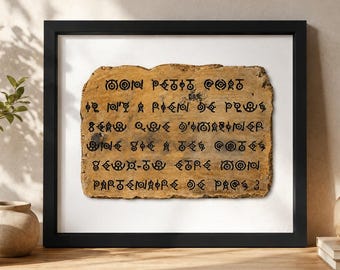 MON PETIT CHAT
IL N'Y A RIEN DE PLUS
BEAU QUE D'IMAGINER
UNE VIE A TES COTES
VEUX-TU ETRE MON
PARTENAIRE DE PACS ?